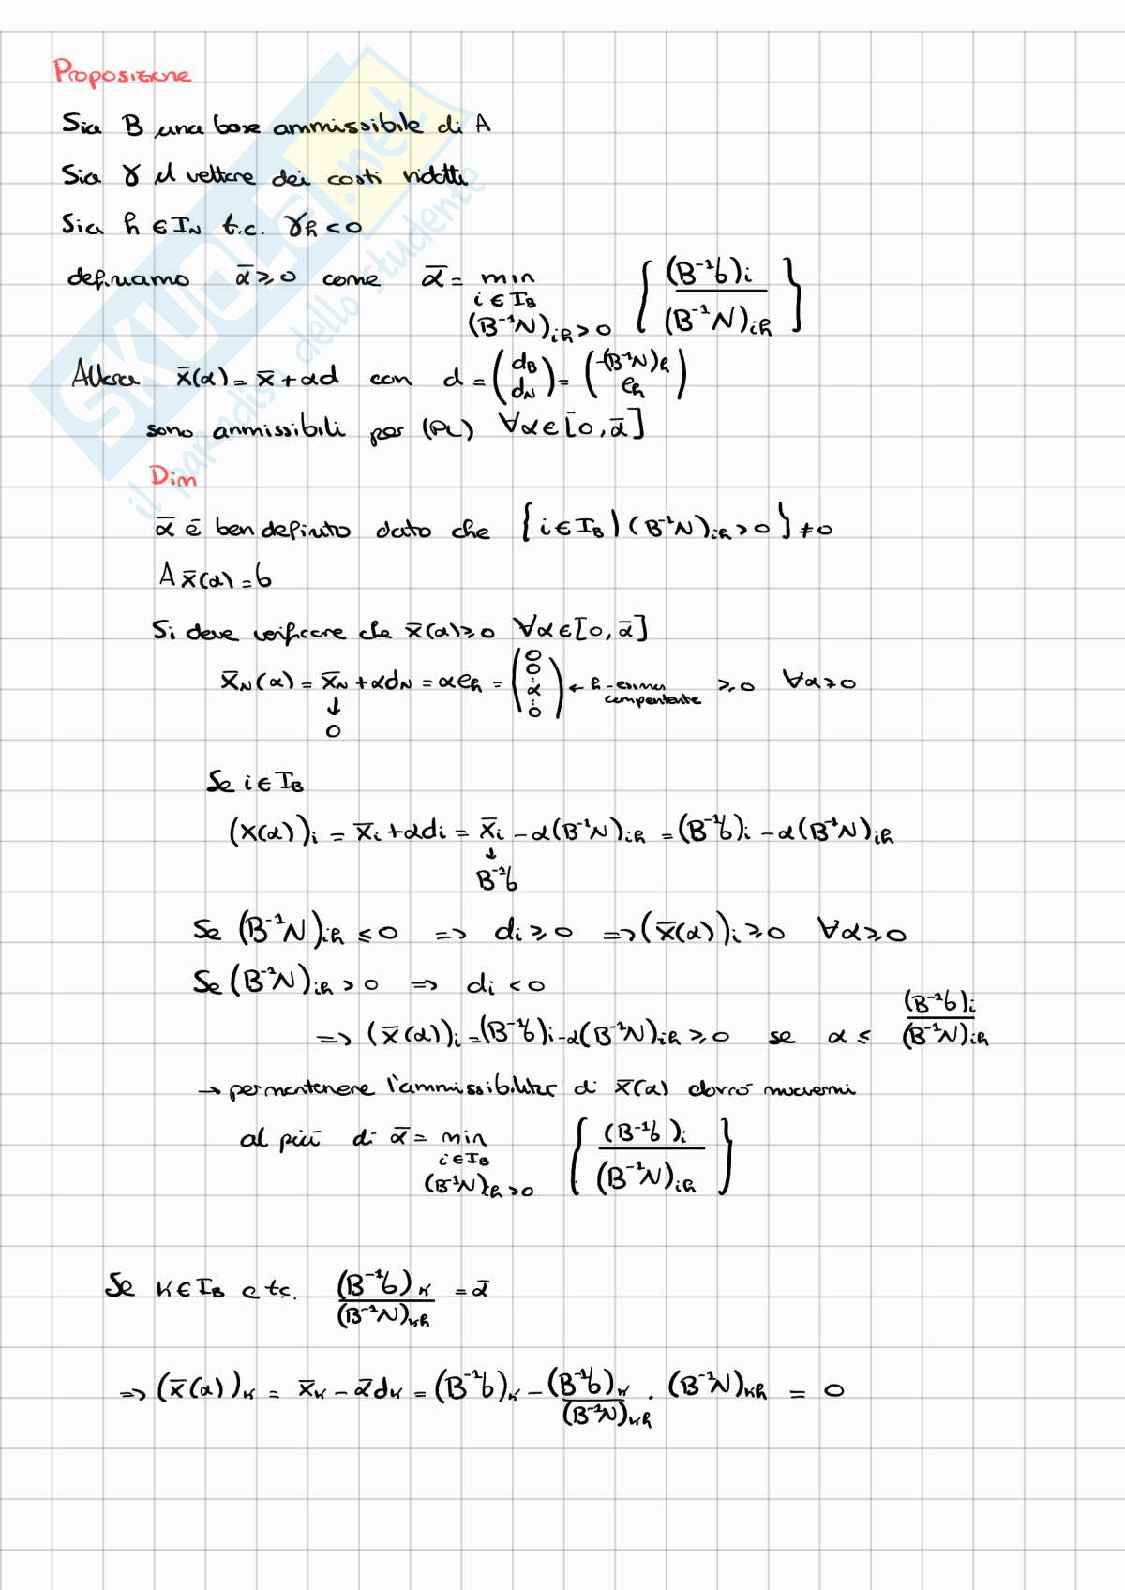 Proposizione
Sia B una base ammissibile di A
Sia γ il vettore dei costi ridotti
Sia h ∈ I_N t.c. γ_h < 0
definiamo ᾱ ≥ 0 come ᾱ = min_{i ∈ I_B, (B⁻¹N)_{ih} > 0} { (B⁻¹b)_i / (B⁻¹N)_{ih} }
Allora x̄(α) = x̄ + αd con d = (d_B d_N) = (-(B⁻¹N)_h e_h)
sono ammissibili per (PL) ∀α ∈ [0, ᾱ]
Dim
ᾱ è ben definito dato che { i ∈ I_B | (B⁻¹N)_{ih} > 0 } ≠ 0
A x̄(α) = b
Si deve verificare che x̄(α) ≥ 0 ∀α ∈ [0, ᾱ]
x̄_N(α) = x̄_N + αd_N = αe_h = (0 0 ⋮ α ⋮ 0) ← h-esima componente ≥ 0 ∀α ≥ 0
↓
0
Se i ∈ I_B
(x(α))_i = x̄_i + αd_i = x̄_i - α(B⁻¹N)_{ih} = (B⁻¹b)_i - α(B⁻¹N)_{ih}
↓
B⁻¹b
Se (B⁻¹N)_{ih} ≤ 0 => d_i ≥ 0 => (x̄(α))_i ≥ 0 ∀α ≥ 0
Se (B⁻¹N)_{ih} > 0 => d_i < 0
=> (x̄(α))_i = (B⁻¹b)_i - α(B⁻¹N)_{ih} ≥ 0 se α ≤ (B⁻¹b)_i / (B⁻¹N)_{ih}
→ per mantenere l'ammissibilità di x̄(α) dovrò muovermi
al più di ᾱ = min_{i ∈ I_B, (B⁻¹N)_{ih} > 0} { (B⁻¹b)_i / (B⁻¹N)_{ih} }
Se K ∈ I_B e t.c. (B⁻¹b)_K / (B⁻¹N)_{Kh} = ᾱ
=> (x̄(α))_K = x̄_K - ᾱd_K = (B⁻¹b)_K - (B⁻¹b)_K / (B⁻¹N)_{Kh} · (B⁻¹N)_{Kh} = 0
SKUOLA.net
il paradiso dello studente